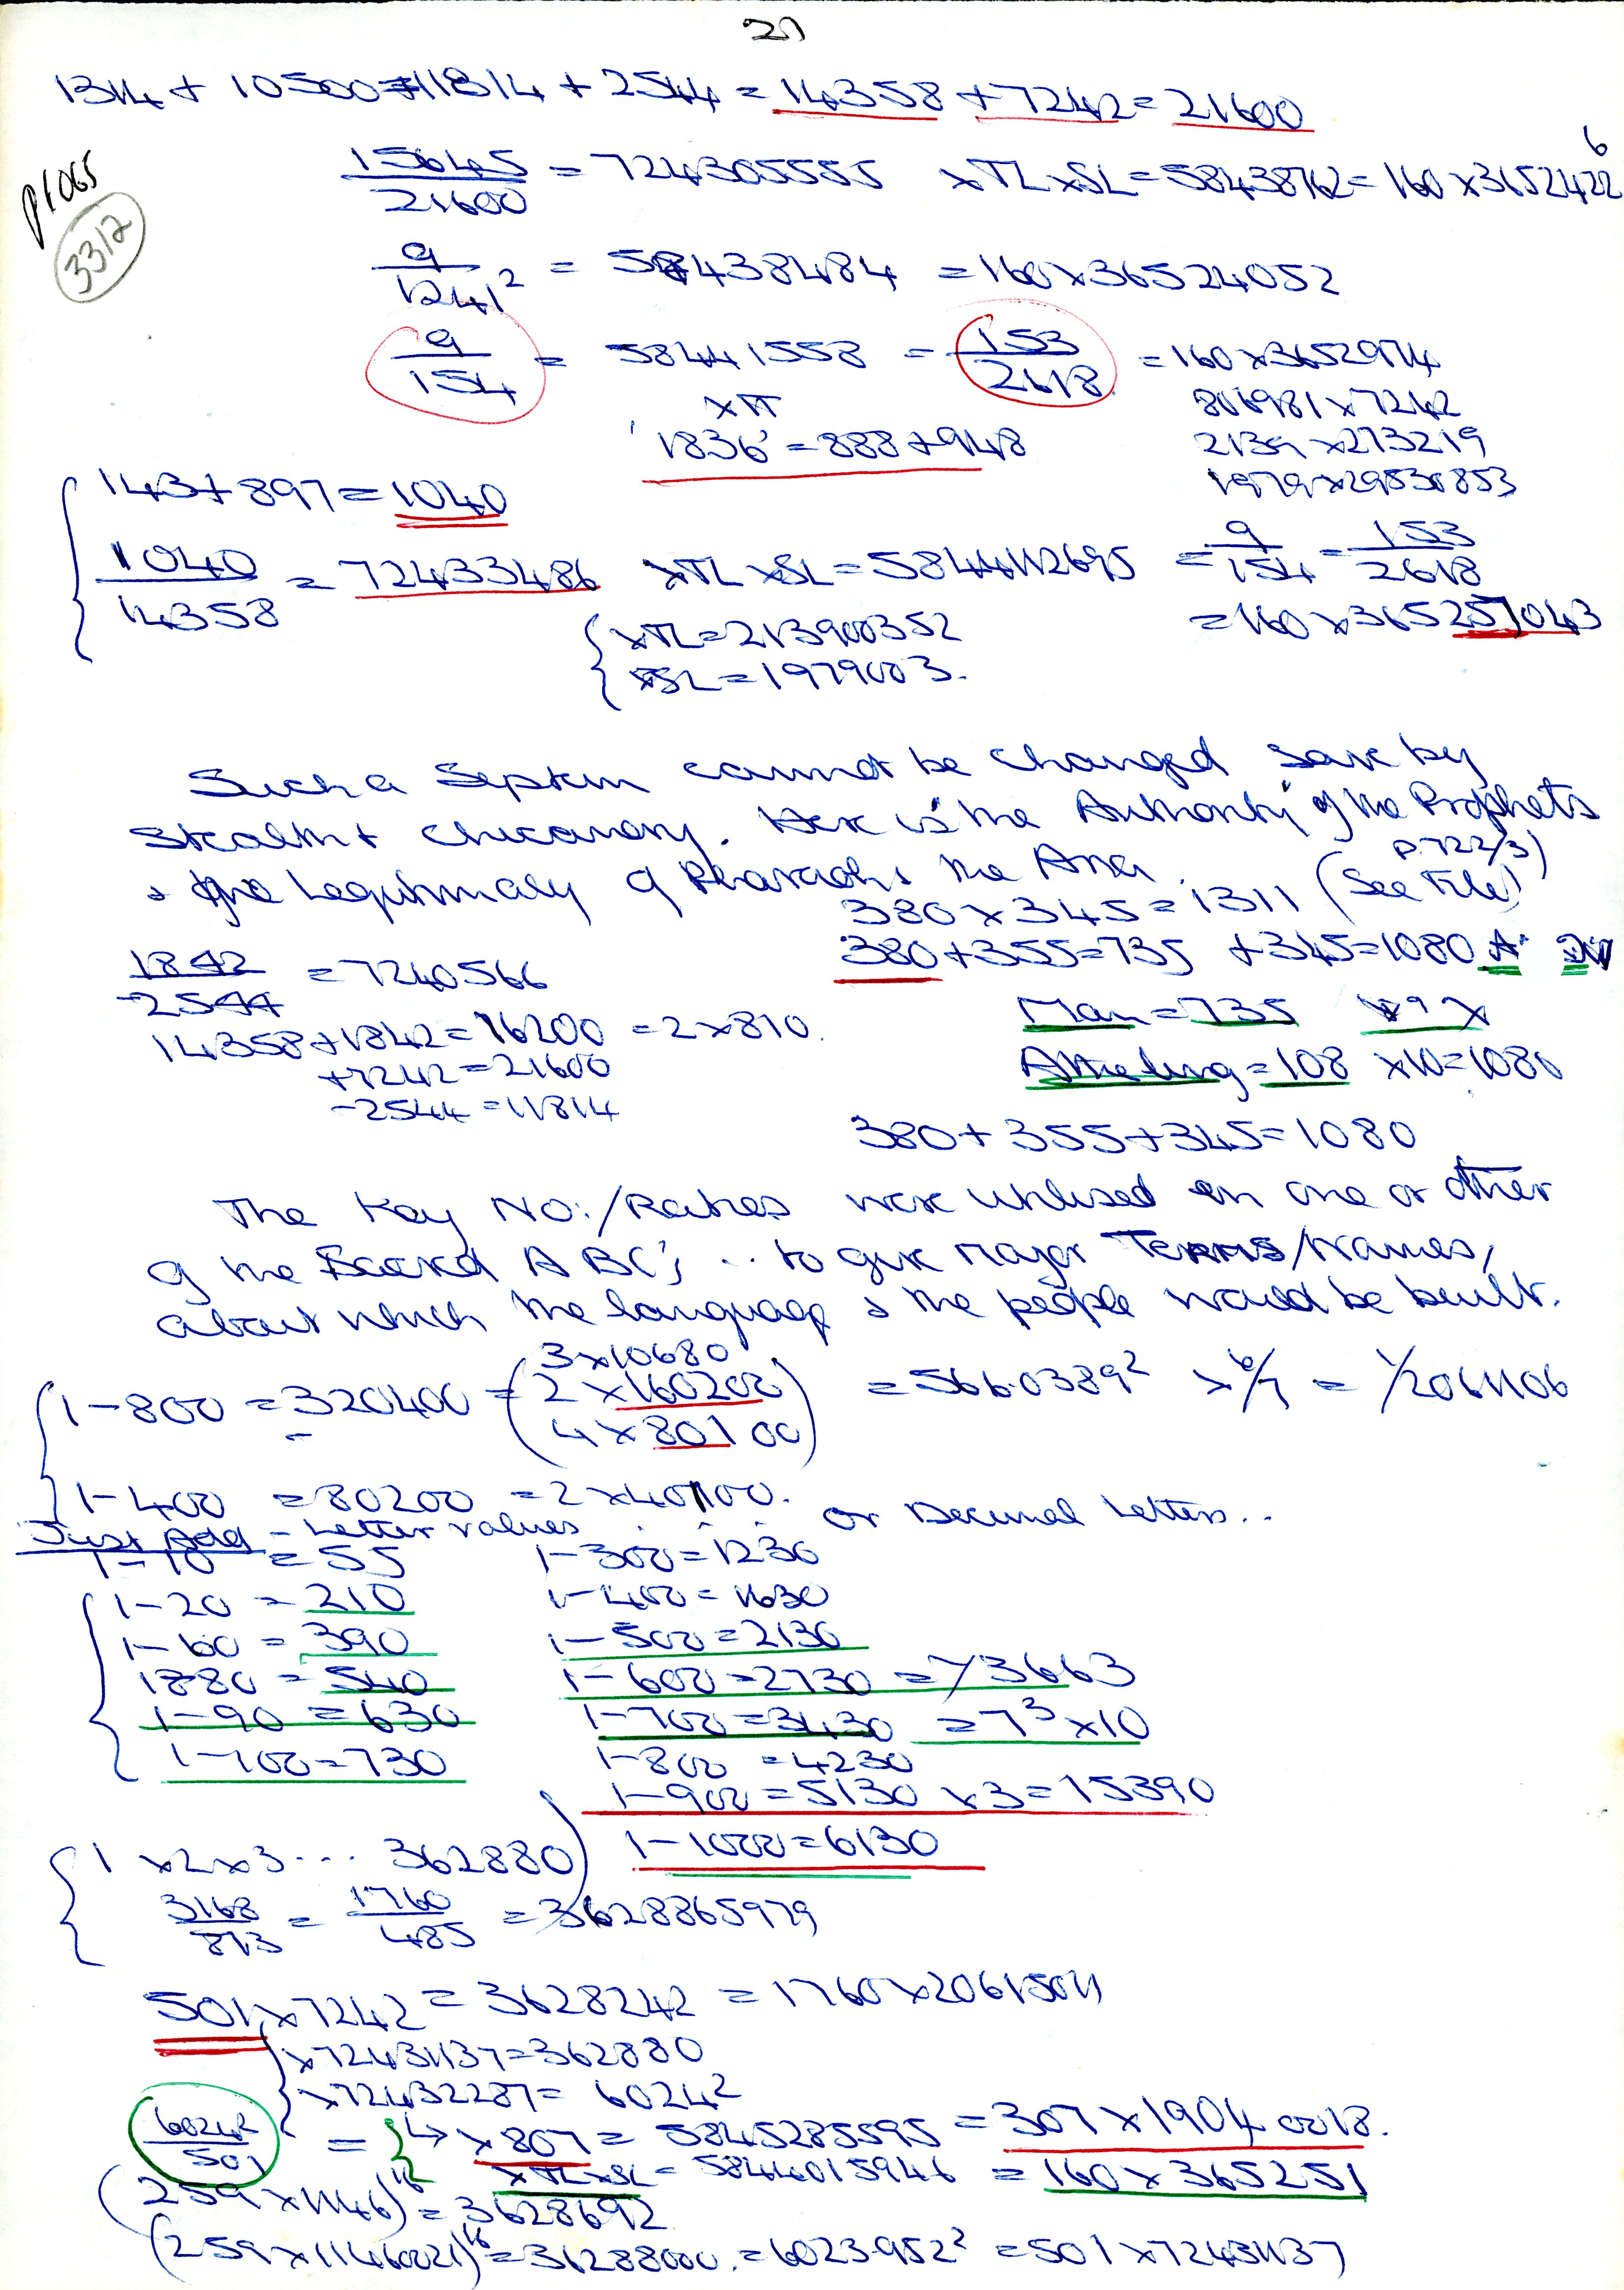 21
1314 + 10500 = 11814 + 2544 = 14358 + 7242 = 21600
p1065
3312
15645/21600 = 724305555 xTLxSL = 58438762 = 160 x 3652422 6
9/1241² = 58438484 = 160 x 36524052
9/154 = 58441558 = 153/2618 = 160 x 36525974
xπ 806981 x 7242
'1836' = 888 + 948 2139 x 273219
1979 x 29530853
143 + 897 = 1040
1040/14358 = 72433486 xTLxSL = 5844112695 = 9/154 = 153/2618
{xTL = 213900352 = 160 x 365257043
xSL = 1979003.
Such a System cannot be changed save by
Stealth & chicanery. Here is the 'Authority' of the Prophets
& the Legitimacy of Pharaohs the Aner. (See File p722/3)
380 x 345 = 1311
1842/2544 = 7240566 380 + 355 = 735 + 345 = 1080
14358 + 1842 = 16200 = 2 x 810. Man = 735
+7242 = 21600 Atheling = 108 x10 = 1080
-2544 = 11814
380 + 355 + 345 = 1080
The Key No:/Ratios were utilised in one or other
of the Sacred ABC's .. to give major Terms/Names,
about which the language & the people would be built.
1-800 = 320400 = (3 x 10680 2 x 160200 4 x 80100) = 566.0389² x 6/7 = 1/2061106
1-400 = 80200 = 2 x 40100.
Just Add - Letter values . . . or Decimal Letters..
1-10 = 55 1-300 = 1230
1-20 = 210 1-400 = 1630
1-60 = 390 1-500 = 2130
1-80 = 540 1-600 = 2730 = 1/3663
1-90 = 630 1-700 = 3430 = 7³ x 10
1-100 = 730 1-800 = 4230
1-900 = 5130 x 3 = 15390
1 x 2 x 3 ... 362880) 1-1000 = 6130
3168/873 = 1760/485 = 3628865979
501 x 7242 = 3628242 = 1760 x 20615011
x72431137 = 362880
x72432287 = 6024²
6024²/501 = x807 = 5845285595 = 307 x 19040018.
xTLxSL = 58446015946 = 160 x 365251
(259 x 1146)¹⁶ = 3628692
(259 x 11460021)¹⁶ = 36288000. = 6023.952² = 501 x 72431137